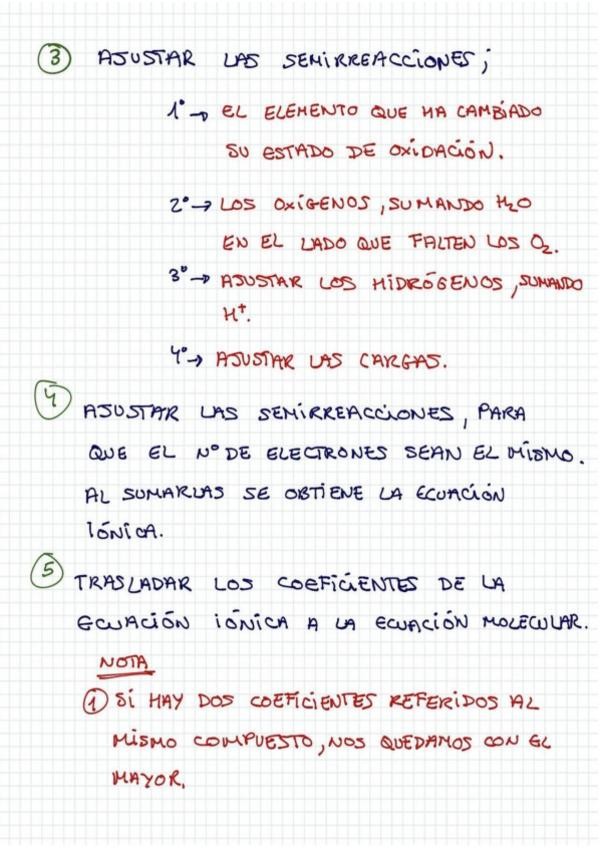 3 AJUSTAR LAS SEMIRREACCIONES;
1º → EL ELEMENTO QUE HA CAMBIADO
SU ESTADO DE OXIDACIÓN.
2º → LOS OXÍGENOS, SUMANDO H₂O
EN EL LADO QUE FALTEN LOS O₂.
3º → AJUSTAR LOS HIDRÓGENOS, SUMANDO
H⁺.
4º → AJUSTAR LAS CARGAS.
4 AJUSTAR LAS SEMIRREACCIONES, PARA
QUE EL Nº DE ELECTRONES SEAN EL MISMO.
AL SUMARLAS SE OBTIENE LA ECUACIÓN
IÓNICA.
5 TRASLADAR LOS COEFICIENTES DE LA
ECUACIÓN IÓNICA A LA ECUACIÓN MOLECULAR.
NOTA
1 SI HAY DOS COEFICIENTES REFERIDOS AL
MISMO COMPUESTO, NOS QUEDAMOS CON EL
MAYOR.